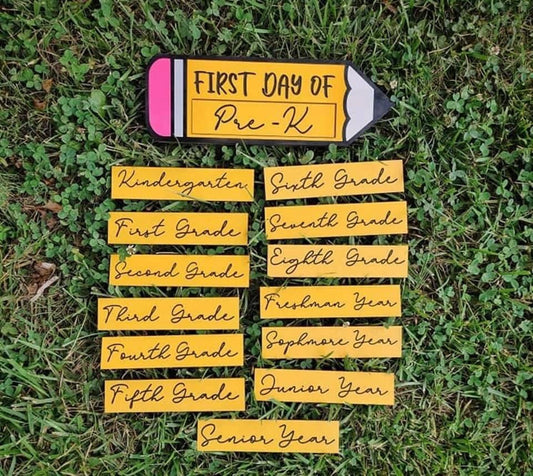 FIRST DAY OF
Pre-K
Kindergarten
First Grade
Second Grade
Third Grade
Fourth Grade
Fifth Grade
Sixth Grade
Seventh Grade
Eighth Grade
Freshman Year
Sophmore Year
Junior Year
Senior Year